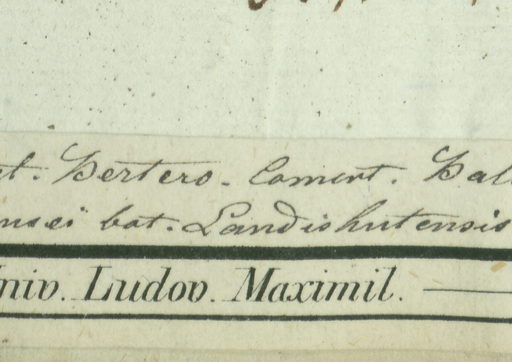 t. Bertero. Comunt. Balb
nsei bot. Landishutensis
niv. Ludov. Maximil.